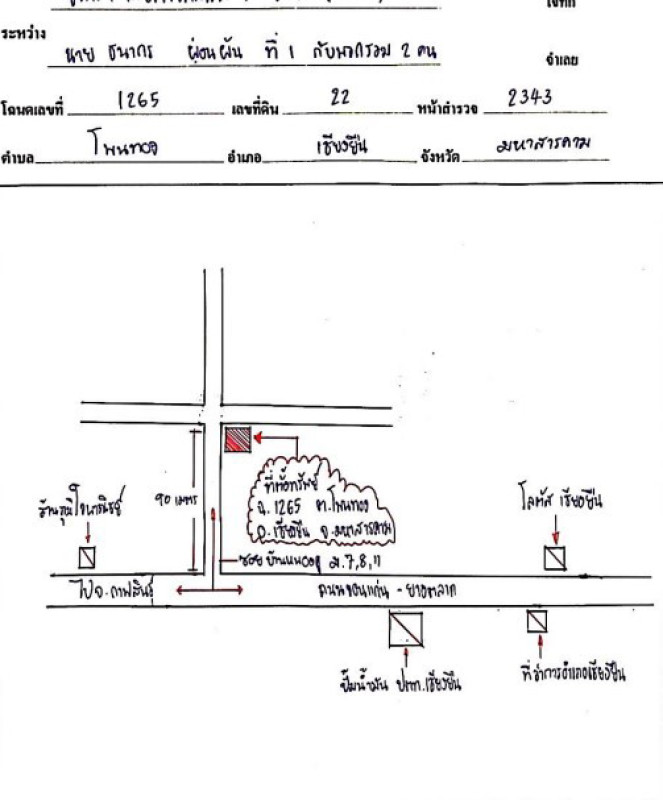 โจทก์
ระหว่าง
นาย ธนากร ผ่อนผัน ที่ 1 กับพวกรวม 2 คน จำเลย
โฉนดเลขที่ 1265 เลขที่ดิน 22 หน้าสำรวจ 2343
ตำบล โพนทอง อำเภอ เชียงยืน จังหวัด มหาสารคาม
ที่ตั้งทรัพย์
ฉ. 1265 ต.โพนทอง
อ.เชียงยืน จ.มหาสารคาม
90 เมตร
ร้านภูมิใจพาณิชย์
โลตัส เชียงยืน
ซอย บ้านหนอง ม.7,8,11
ไป จ.กาฬสินธุ์
ถนนขอนแก่น - ยางตลาด
ปั๊มน้ำมัน ปตท.เชียงยืน
ที่ว่าการอำเภอเชียงยืน